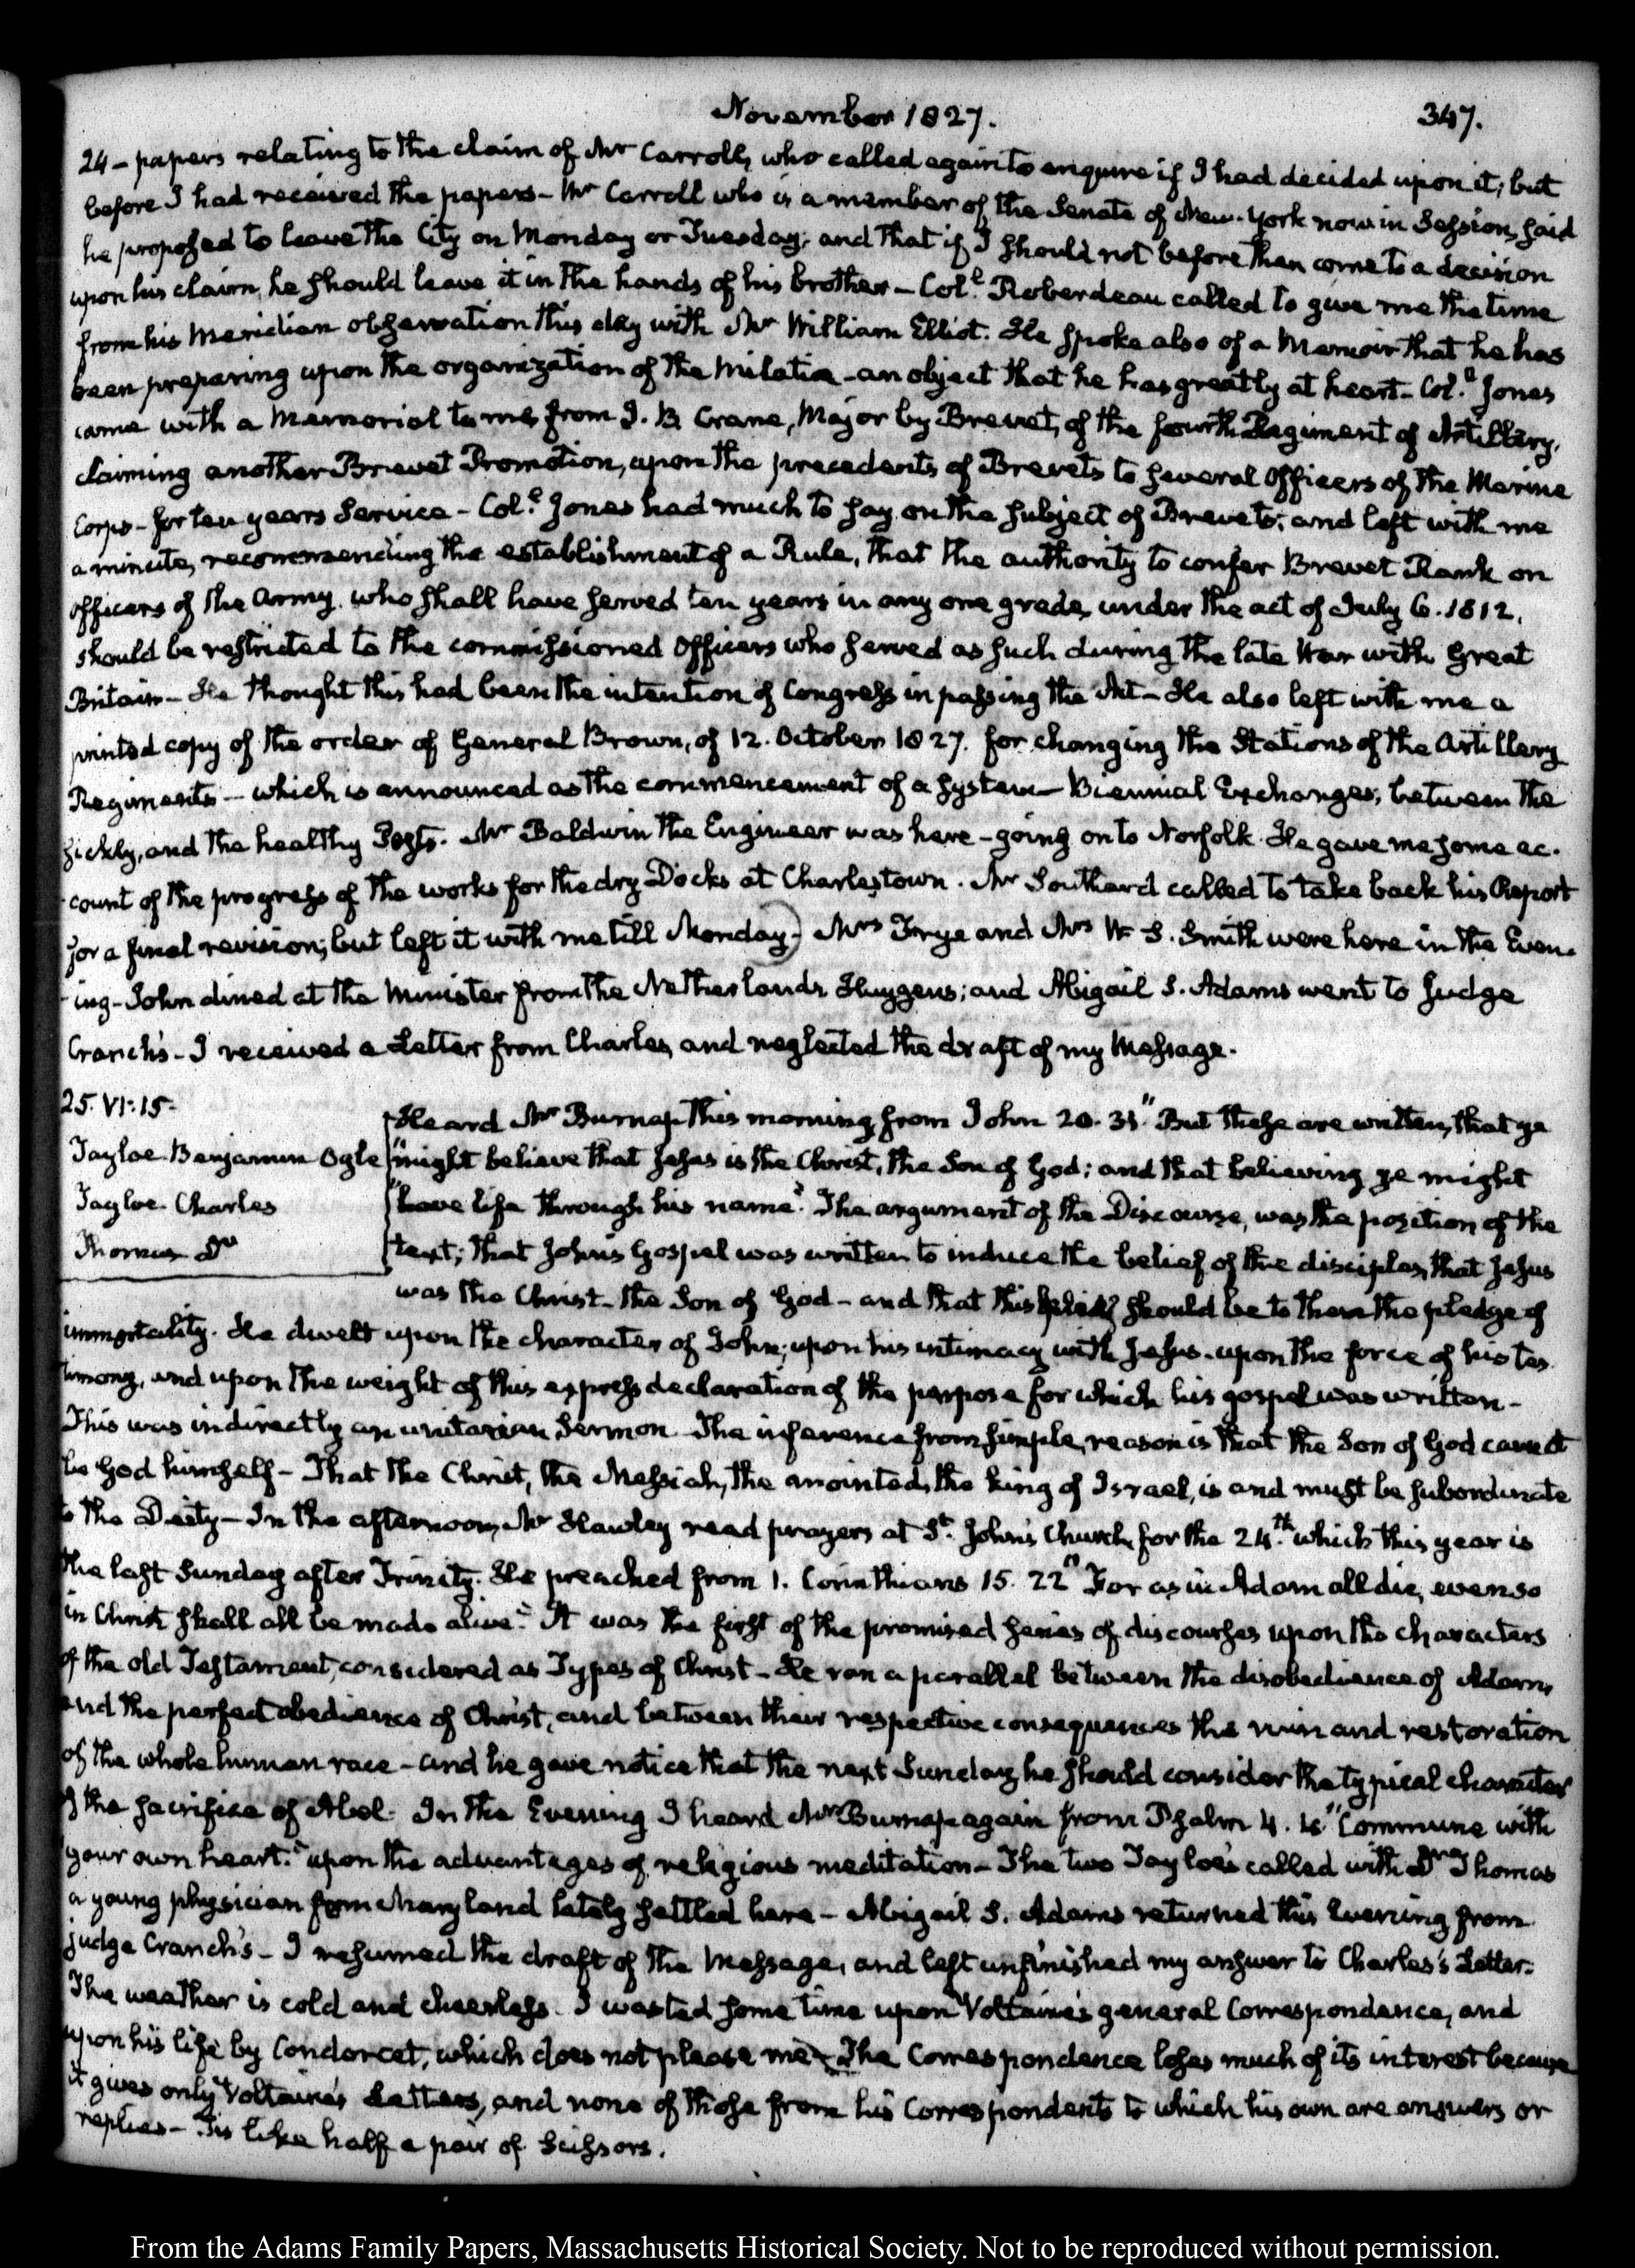 November 1827.
347.
24 – papers relating to the claim of Mr Carroll, who called again to enquire if I had decided upon it; but
before I had received the papers – Mr Carroll who is a member of the Senate of New-York now in Session, said
he proposed to leave the City on Monday or Tuesday; and that if I should not before then come to a decision
upon his claim, he should leave it in the hands of his brother – Coll. Roberdeau called to give me the time
from his Meridian observation this day with Mr William Elliot. He spoke also of a Memoir that he has
been preparing upon the organization of the Militia – an object that he has greatly at heart – Coll. Jones
came with a Memorial to me from I. B. Crane, Major by Brevet, of the fourth Regiment of Artillery,
claiming another Brevet Promotion, upon the precedents of Brevets to several Officers of the Marine
Corps – for ten years Service – Coll. Jones had much to say on the subject of Brevets; and left with me
a minute, recommending the establishment of a Rule, that the authority to confer Brevet Rank on
officers of the Army, who shall have served ten years in any one grade, under the act of July 6. 1812.
should be restricted to the commissioned Officers who served as such during the late War with Great
Britain – He thought this had been the intention of Congress in passing the Act – He also left with me a
printed copy of the order of General Brown, of 12. October 1827. for changing the Stations of the Artillery
Regiments – which is announced as the commencement of a system – Biennial Exchanges, between the
sickly, and the healthy Posts. Mr Baldwin the Engineer was here – going on to Norfolk. He gave me some ac-
count of the progress of the works for the dry Docks at Charlestown. Mr Southard called to take back his Report
for a final revision; but left it with me till Monday) Mrs Frye and Mrs W. S. Smith were here in the Even-
-ing – John dined at the Minister from the Netherlands Huygens; and Abigail S. Adams went to Judge
Cranch's – I received a Letter from Charles, and neglected the draft of my Message.
25. VI:15.
Tayloe Benjamin Ogle
Tayloe Charles
Thomas Dr
Heard Mr Burnap this morning from John 20. 31 "But these are written, that ye
"might believe that Jesus is the Christ, the Son of God; and that believing ye might
"have life through his name." The argument of the Discourse, was the position of the
text; that John's Gospel was written to induce the belief of the disciples, that Jesus
was the Christ – the Son of God – and that this belief should be to them the pledge of
immortality. He dwelt upon the character of John; upon his intimacy with Jesus – upon the force of his tes-
timony, and upon the weight of this express declaration of the purpose for which his gospel was written –
This was indirectly an unitarian Sermon – The inference from simple, reason is that the Son of God cannot
be God himself – That the Christ, the Messiah, the anointed, the king of Israel, is and must be subordinate
to the Deity – In the afternoon, Mr Hawley read prayers at St. John's Church, for the 24th. which this year is
the last Sunday after Trinity. He preached from 1. Corinthians 15. 22 "For as in Adam all die, even so
in Christ shall all be made alive." It was the first of the promised series of discourses upon the characters
of the old Testament, considered as Types of Christ – He ran a parallel between the disobedience of Adam,
and the perfect obedience of Christ, and between their respective consequences the ruin and restoration
of the whole human race – and he gave notice that the next Sunday he should consider the typical character
of the sacrifice of Abel. In the Evening I heard Mr Burnap again from Psalm 4. "Commune with
your own heart." upon the advantages of religious meditation – The two Tayloe's called with Dr Thomas
a young physician from Maryland lately settled here – Abigail S. Adams returned this Evening from
judge Cranch's – I resumed the draft of the Message, and left unfinished my answer to Charles's Letter.
The weather is cold and cheerless. I wasted some time upon Voltaire's general Correspondence, and
upon his life by Condorcet, which does not please me – The Correspondence loses much of its interest because
it gives only Voltaire's Letters, and none of those from his Correspondents to which his own are answers or
replies – Tis like half a pair of Scissors.
From the Adams Family Papers, Massachusetts Historical Society. Not to be reproduced without permission.